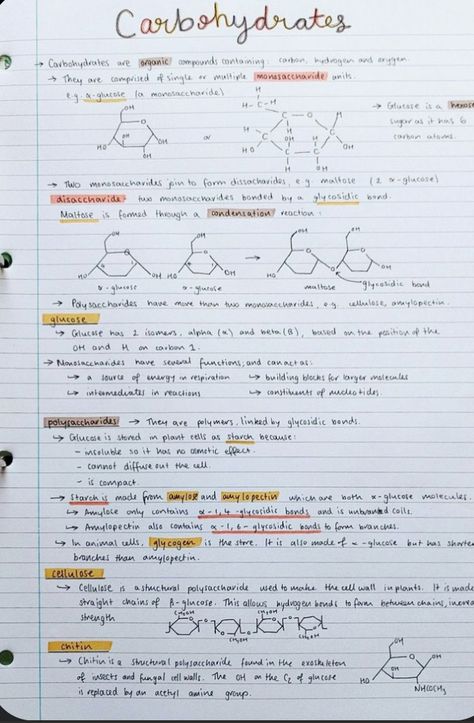 Carbohydrates
→ Carbohydrates are organic compounds containing: carbon, hydrogen and oxygen.
→ They are comprised of single or multiple monosaccharide units.
e.g. α-glucose (a monosaccharide)
→ Glucose is a hexose
sugar as it has 6
carbon atoms.
OH
HO
OH
OH
OH
or
H
H-C-H
C
O
H
HO
OH
→ Two monosaccharides join to form dissacharides, e.g. maltose (2 α-glucose)
disaccharide two monosaccharides bonded by a glycosidic bond.
Maltose is formed through a condensation reaction:
α-glucose
α-glucose
→
maltose
glycosidic bond
→ Polysaccharides have more than two monosaccharides, e.g. cellulose, amylopectin.
glucose
↳ Glucose has 2 isomers, alpha (α) and beta (β), based on the position of the
OH and H on carbon 1.
→ Monosaccharides have several functions, and can act as:
↳ a source of energy in respiration ↳ building blocks for larger molecules
↳ intermediates in reactions ↳ constituents of nucleotides.
polysaccharides → They are polymers, linked by glycosidic bonds.
↳ Glucose is stored in plant cells as starch because:
- insoluble so it has no osmotic effect.
- cannot diffuse out the cell.
- is compact.
→ Starch is made from amylose and amylopectin which are both α-glucose molecules.
↳ Amylose only contains α-1,4-glycosidic bonds and is unbranched coils.
↳ Amylopectin also contains α-1,6-glycosidic bonds to form branches.
↳ In animal cells, glycogen is the store. It is also made of α-glucose but has shorter
branches than amylopectin.
cellulose
↳ Cellulose is a structural polysaccharide used to make the cell wall in plants. It is made
straight chains of β-glucose. This allows hydrogen bonds to form between chains,
strength
CH₂OH
CH₂OH
CH₂OH
CH₂OH
chitin
↳ Chitin is a structural polysaccharide found in the exoskeleton
of insects and fungal cell walls. The OH on the C₂ of glucose
is replaced by an acetyl amine group.
OH
HO
OH
OH
NHCOCH₃